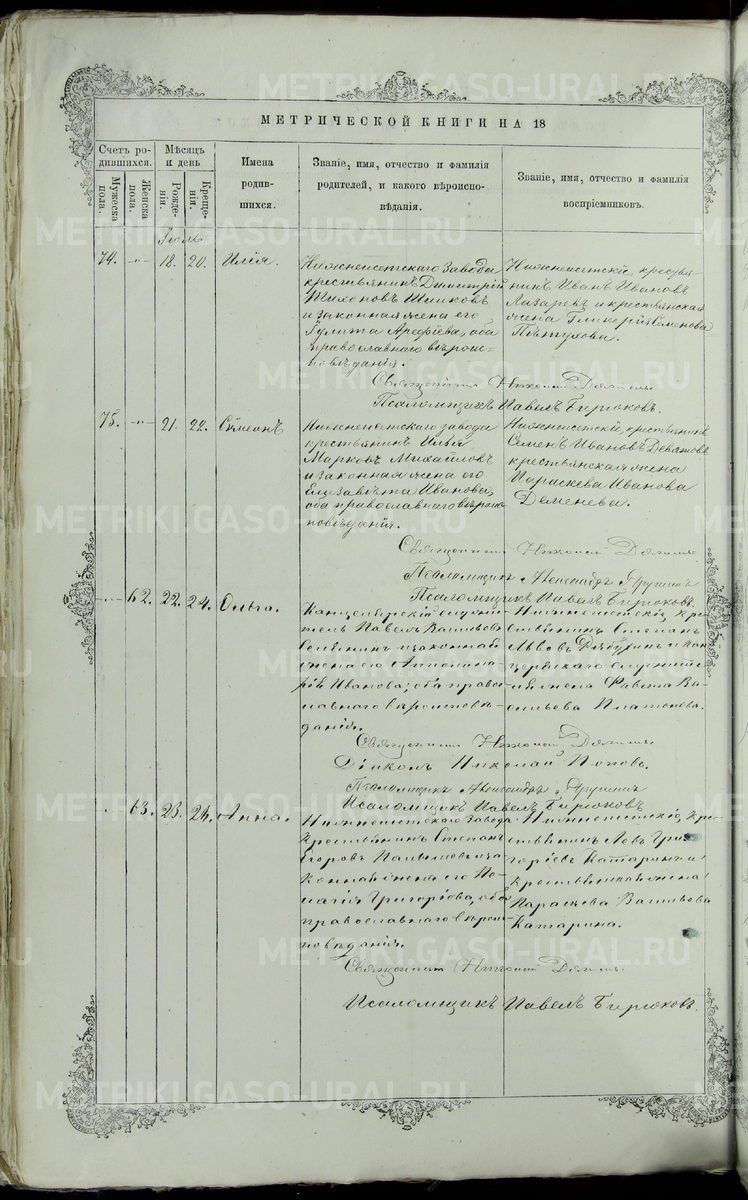 МЕТРИЧЕСКОЙ КНИГИ НА 18
Счетъ ро-
дившихся.
Мужеска
пола.
Женска
пола.
Мѣсяцъ
и день
Рожде-
нія.
Креще-
нія.
Имена
родив-
шихся.
Званіе, имя, отчество и фамилія
родителей, и какого вѣроиспо-
вѣданія.
Званіе, имя, отчество и фамилія
воспріемниковъ.
Іюль
74. -"- 18. 20. Илія.
Нижнеисетскаго завода
крестьянинъ Димитрій
Тихоновъ
и законная жена его
Іулита Арефіева, оба
православнаго вѣроис-
повѣданія.
Нижнеисетскій крестья-
нинъ Иванъ Ивановъ
Лазаревъ и крестьянская
жена Гликерія Семенова
Пѣтухова.
Священникъ Николай
Псаломщикъ Павелъ Бирюковъ.
75. -"- 21. 22. Сѵмеонъ
Нижнеисетскаго завода
крестьянинъ Илія
Марковъ Михайловъ
и законная жена его
Елисавета Иванова,
оба православнаго вѣроис-
повѣданія.
Нижнеисетскій крестьянинъ
Семенъ Ивановъ
крестьянская жена
Параскева Иванова
Деменева.
Священникъ Николай
Псаломщикъ Александръ
Псаломщикъ Павелъ Бирюковъ.
62. 22. 24. Ольга.
Канцелярскій служи-
тель Павелъ Васильевъ
и законная
жена его Апполина-
рія Иванова; оба право-
славнаго вѣроисповѣ-
данія.
Нижнеисетскій кре-
стьянинъ Степанъ
Львовъ и кан-
целярскаго служите-
ля жена Ва-
сильева Платонова.
Священникъ Николай
Діаконъ Николай Поповъ.
Псаломщикъ Александръ
Псаломщикъ Павелъ Бирюковъ
63. 23. 24. Анна.
Нижнеисетскаго завода
крестьянинъ Степанъ
Егоровъ и за-
конная жена его Пе-
лагія Григорьева, оба
православнаго вѣроис-
повѣданія.
Нижнеисетскій кре-
стьянинъ Левъ Гри-
горьевъ Катаринъ и
крестьянская жена
Параскева Васильева
Катарина.
Священникъ Николай
Псаломщикъ Павелъ Бирюковъ.
METRIKI.GASO-URAL.RU